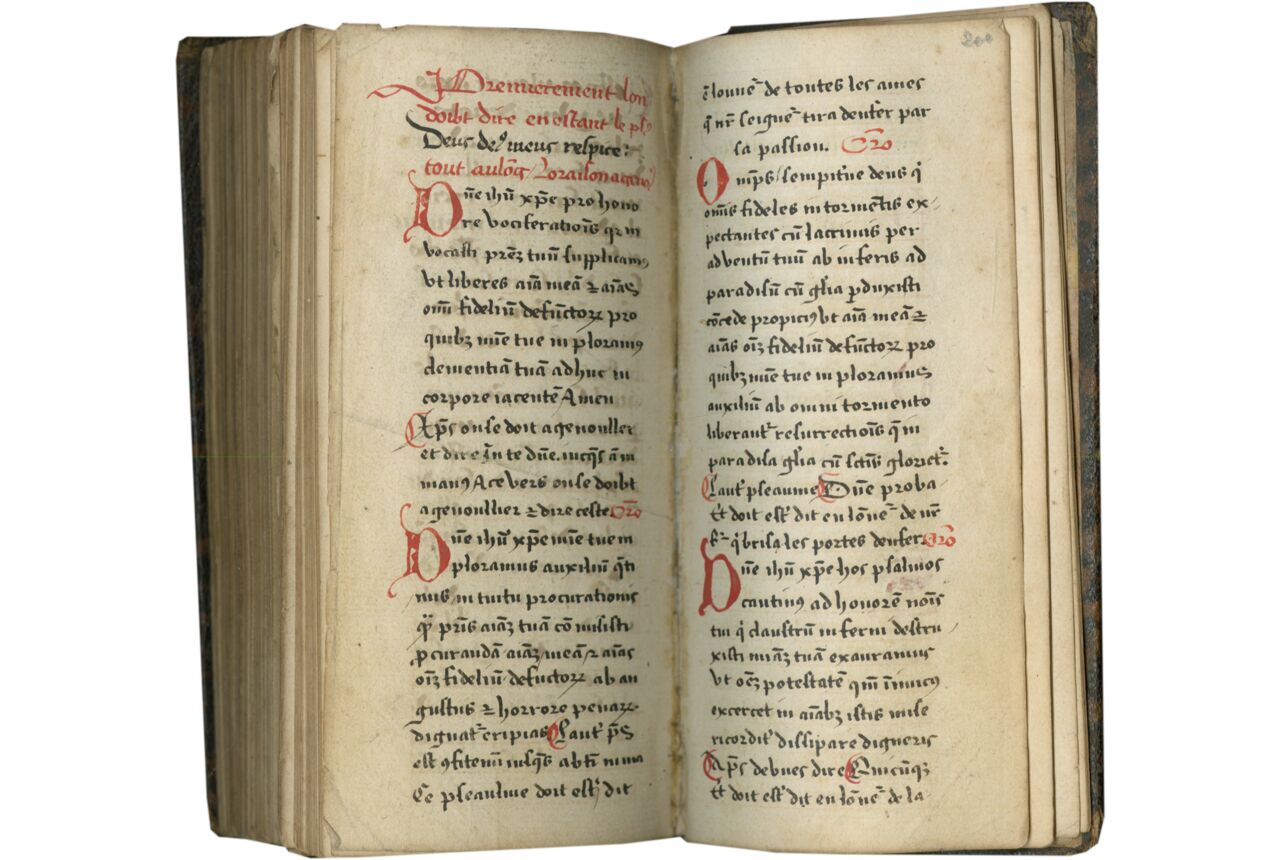 Premierement lon
doibt dire en estant le ps
Deus de⁹ meus respice:
tout au lōg / Loraison a genoꝰ
Dn̄e ihū xp̄e pro hono
re vociferatiōis qͣ in
vocasti prēz tuū supplicamꝰ
vt liberes aīā meā ⁊ aīas
om̄ū fideliū defūctorꝝ pro
quibꝫ mīe tue inploramꝰ
clementiā tuā adhuc in
corpore iacentē Amen
Ap̄s on se doit agenoullier
et dire In te dn̄e. iusq̄s ā in
manꝰ A ce vers on se doibt
agenoullier ⁊ dire ceste Oro
Dn̄e ihū xp̄e mīe tue in
ploramus auxiliū q̄ti
nus intuitu procurationis
qͣ pr̄is aīaꝫ tuā cōmisisti
ꝓcurandā aīaꝫ meā ⁊ aīas
oīꝫ fideliū defūctorꝝ ab an
gustus ⁊ horrore penarꝝ
dignatʳ eripias Lautʳ p̄s
est ꝯfitemī iusq̄s abtī nima
Ce pseaulme doit estʳ dit
200
en lōneʳ de toutes les ames
q̄ nr̄e seigneʳ tira denfer par
sa passion. Oro
Omps sempit̄ne deus q̇
om̄s fideles in tormētis ex-
pectantes cū lacrimis per
adventū tuū ab inferis ad
paradisū cū gl̄ia ꝑduxisti
cōcede propiciꝰ vt aīā meā ⁊
aīas oīꝫ fideliū defūctorꝝ pro
quibꝫ mīe tue inploramus
auxiliū ab omni tormento
liberantʳ resurrectiōis q̄ in
paradisa gl̄ia cū sctīs glorietʳ.
Lautʳ pseaume Dn̄e proba
Et doit estʳ dit en lōneʳ de nr̄e
sʳ q̇ brisa les portes denfer Oro
Dn̄e ihū xp̄e hos psalmos
cantimꝰ ad honorē nōīs
tui q̇ claustrū inferni destru
xisti mīaꝫ tuā exauramus
vt oēꝫ potestatē qm̄ īimicꝰ
excercet in aīabꝫ istis mise
ricorditʳ dissipare digneris
Ap̄s debues dire Quicūqꝫ
Et doit estʳ dit en lōneʳ de la